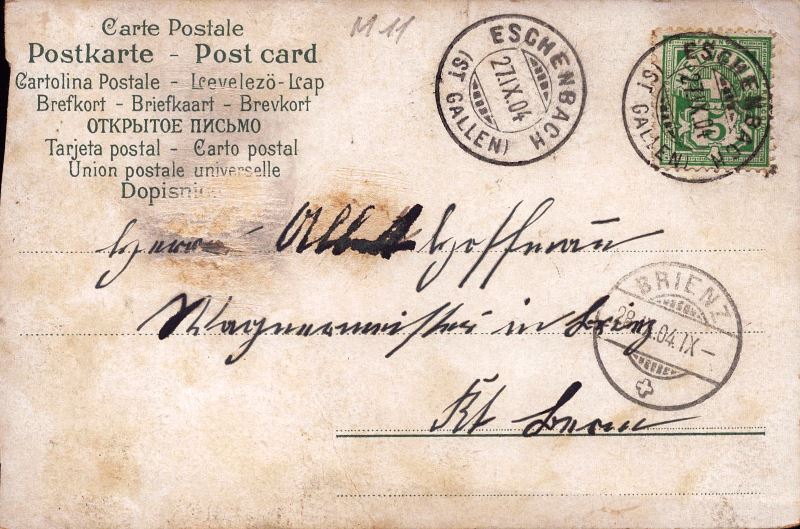 Carte Postale
Postkarte - Post card
Cartolina Postale - Levelezö-Lap
Brefkort - Briefkaart - Brevkort
ОТКРЫТОЕ ПИСЬМО
Tarjeta postal - Carto postal
Union postale universelle
Dopisni
M 11
ESCHENBACH
27.IX.04
(ST GALLEN)
ESCHENBACH
27.IX.04
(ST GALLEN)
5
Herrn Hoffmann
Wagnermeister in Brienz
Kt Bern
BRIENZ
28.IX.04.IX-